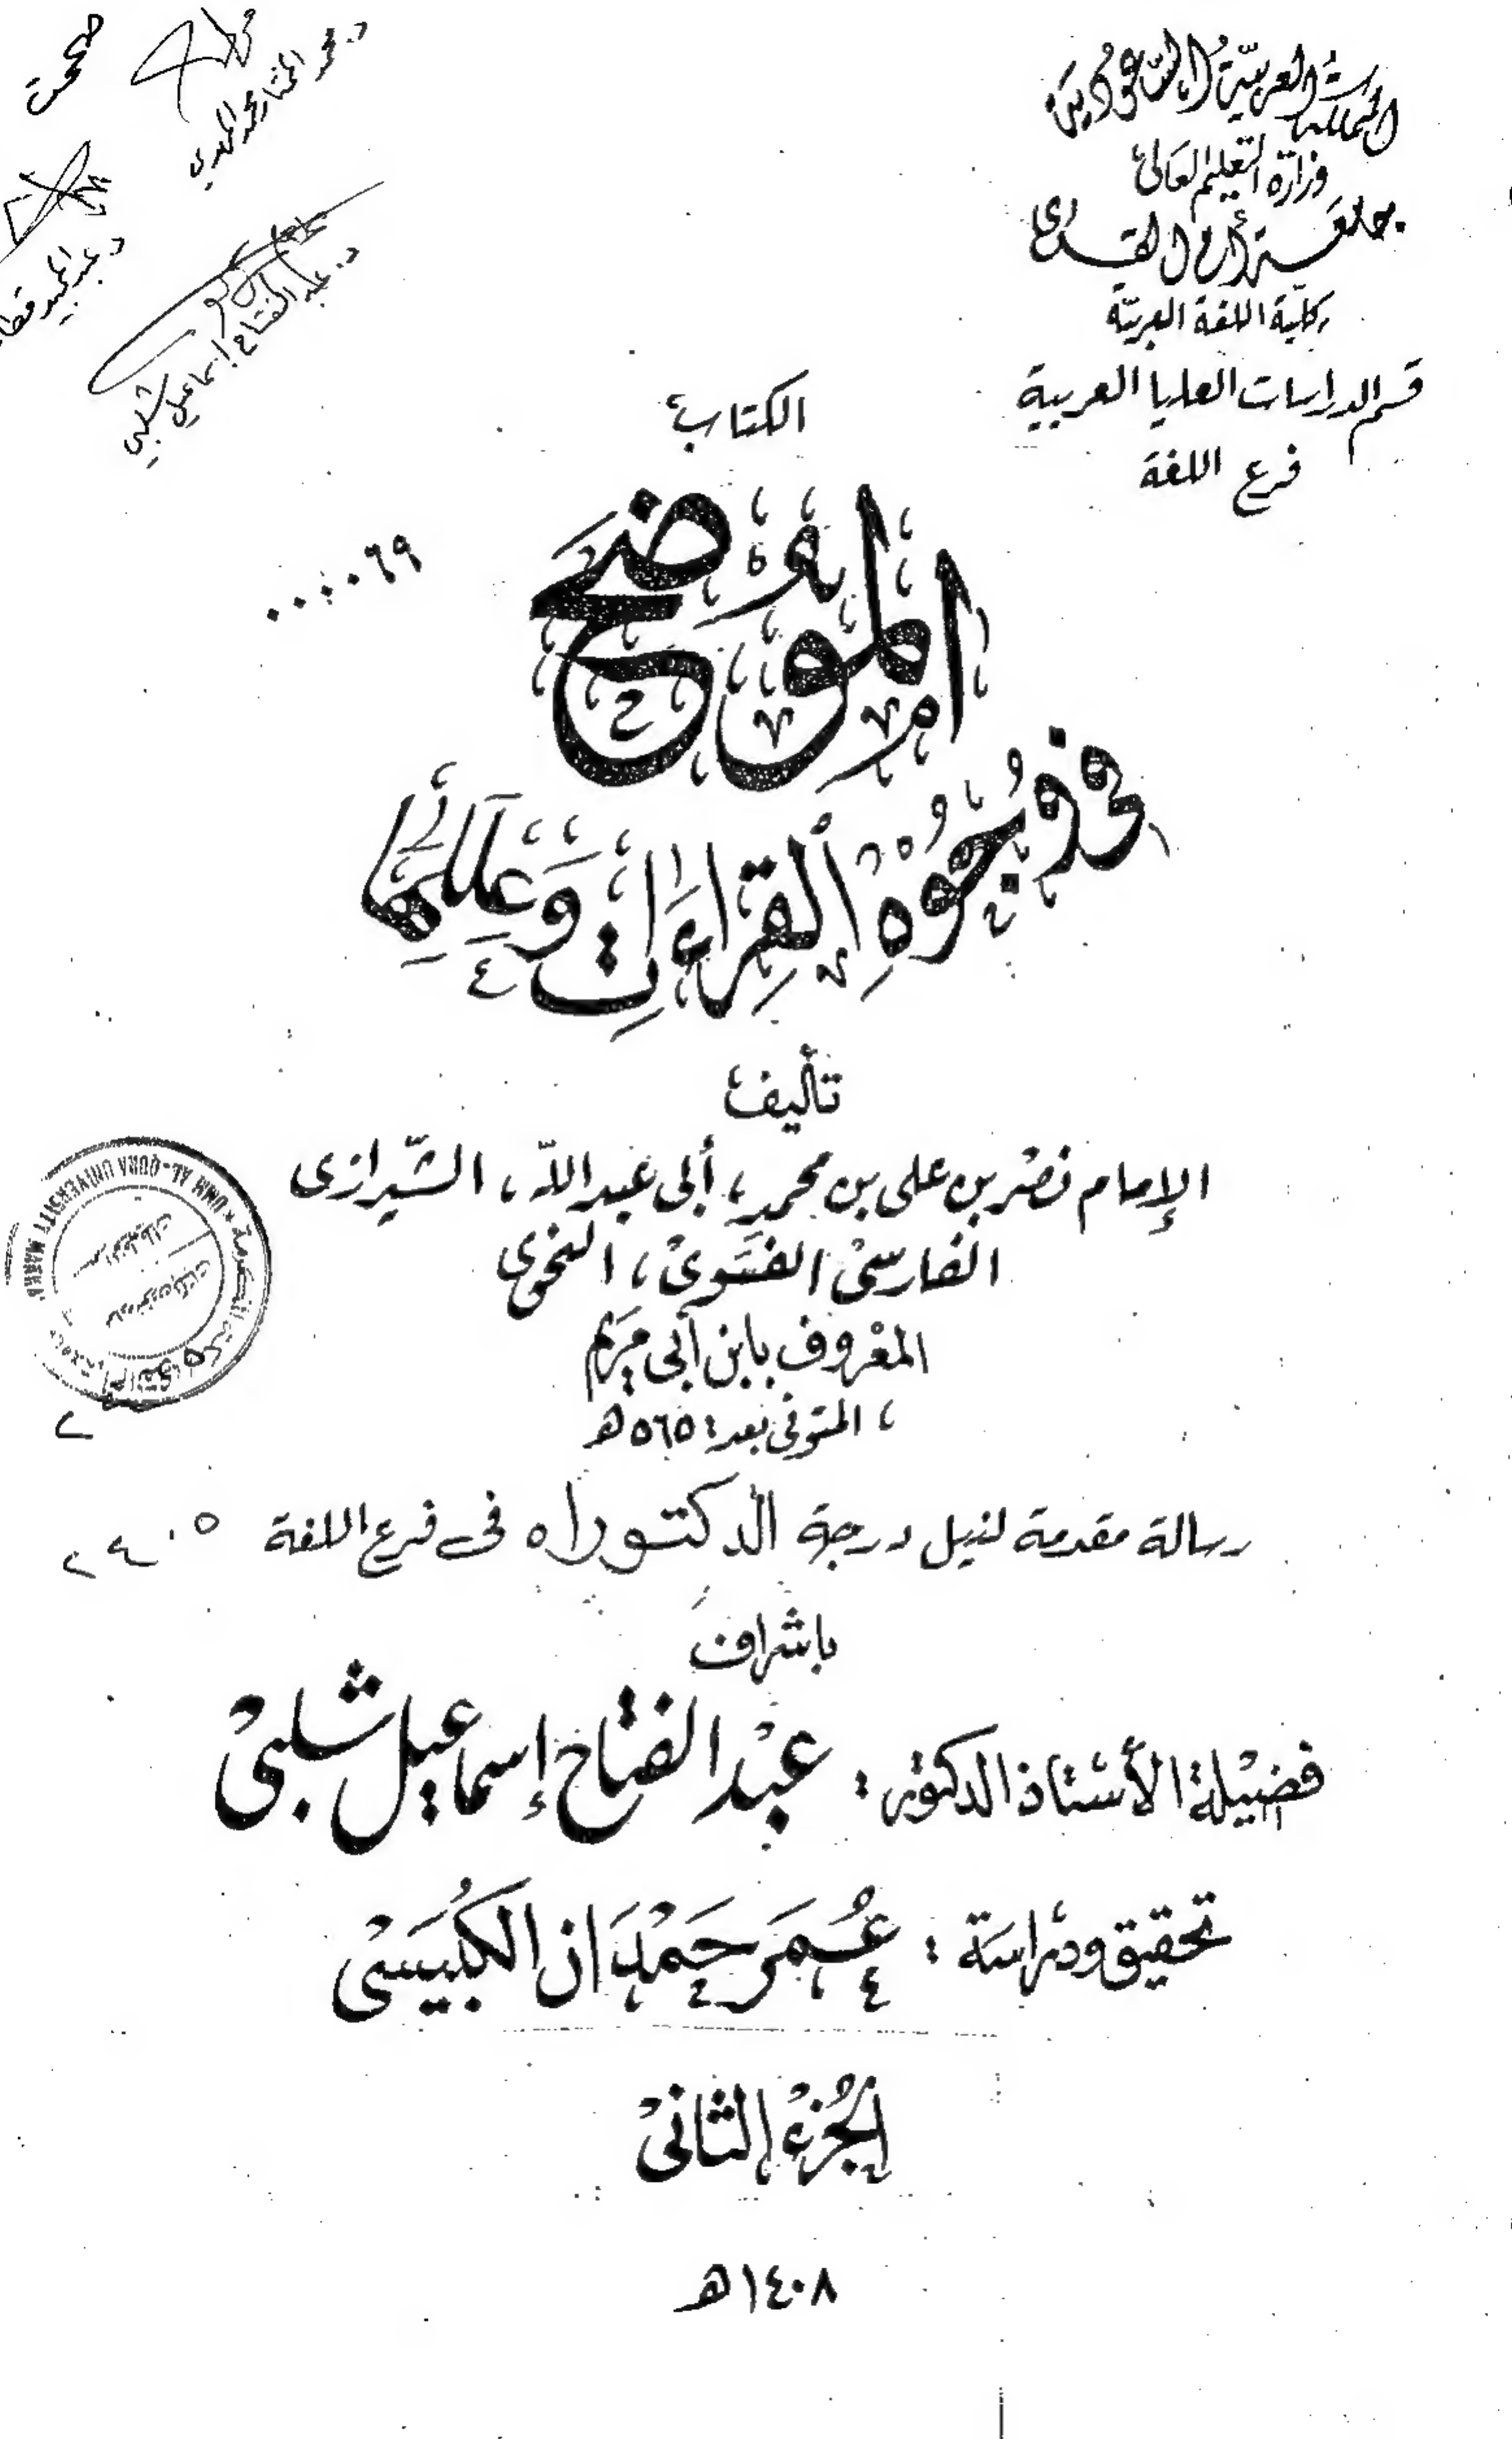 المملكة العربية السعودية
وزارة التعليم العالى
جامعة أم القرى
كلية اللغة العربية
قسم الدراسات العليا العربية
فرع اللغة
صححت
د. عبد الفتاح إسماعيل شلبي
الكتاب
٠٠٠٠٦٩
الموضح
فى وُجُوهِ القِرَاءَاتِ وَعِلَلِهَا
تأليف
الإمام نصر بن على بن محمد، أبى عبد الله، الشّيرازى
الفارسى الفسَوى، النحوى
المعْروف بابن أبى مريَم
، المتوفى بعد: ٥٦٥ه
رسالة مقدمة لنيل درجة الدكتوراه فى فرع اللغة
٢٤٠٥
باشراف
فضيلة الأستاذ الدكتور: عبْد الفتاح إسماعيل شلبى
تحقيق ودراسة: عُمَر حَمْدَان الكبُيَسى
الجُزء الثانى
١٤٠٨ه
UMM AL-QURA UNIVERSITY MAKKA